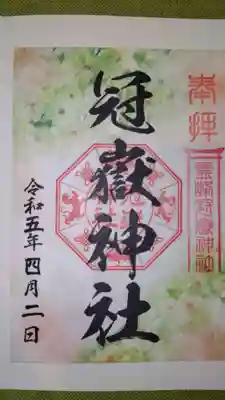 奉拝
冠嶽神社
令和五年四月二日